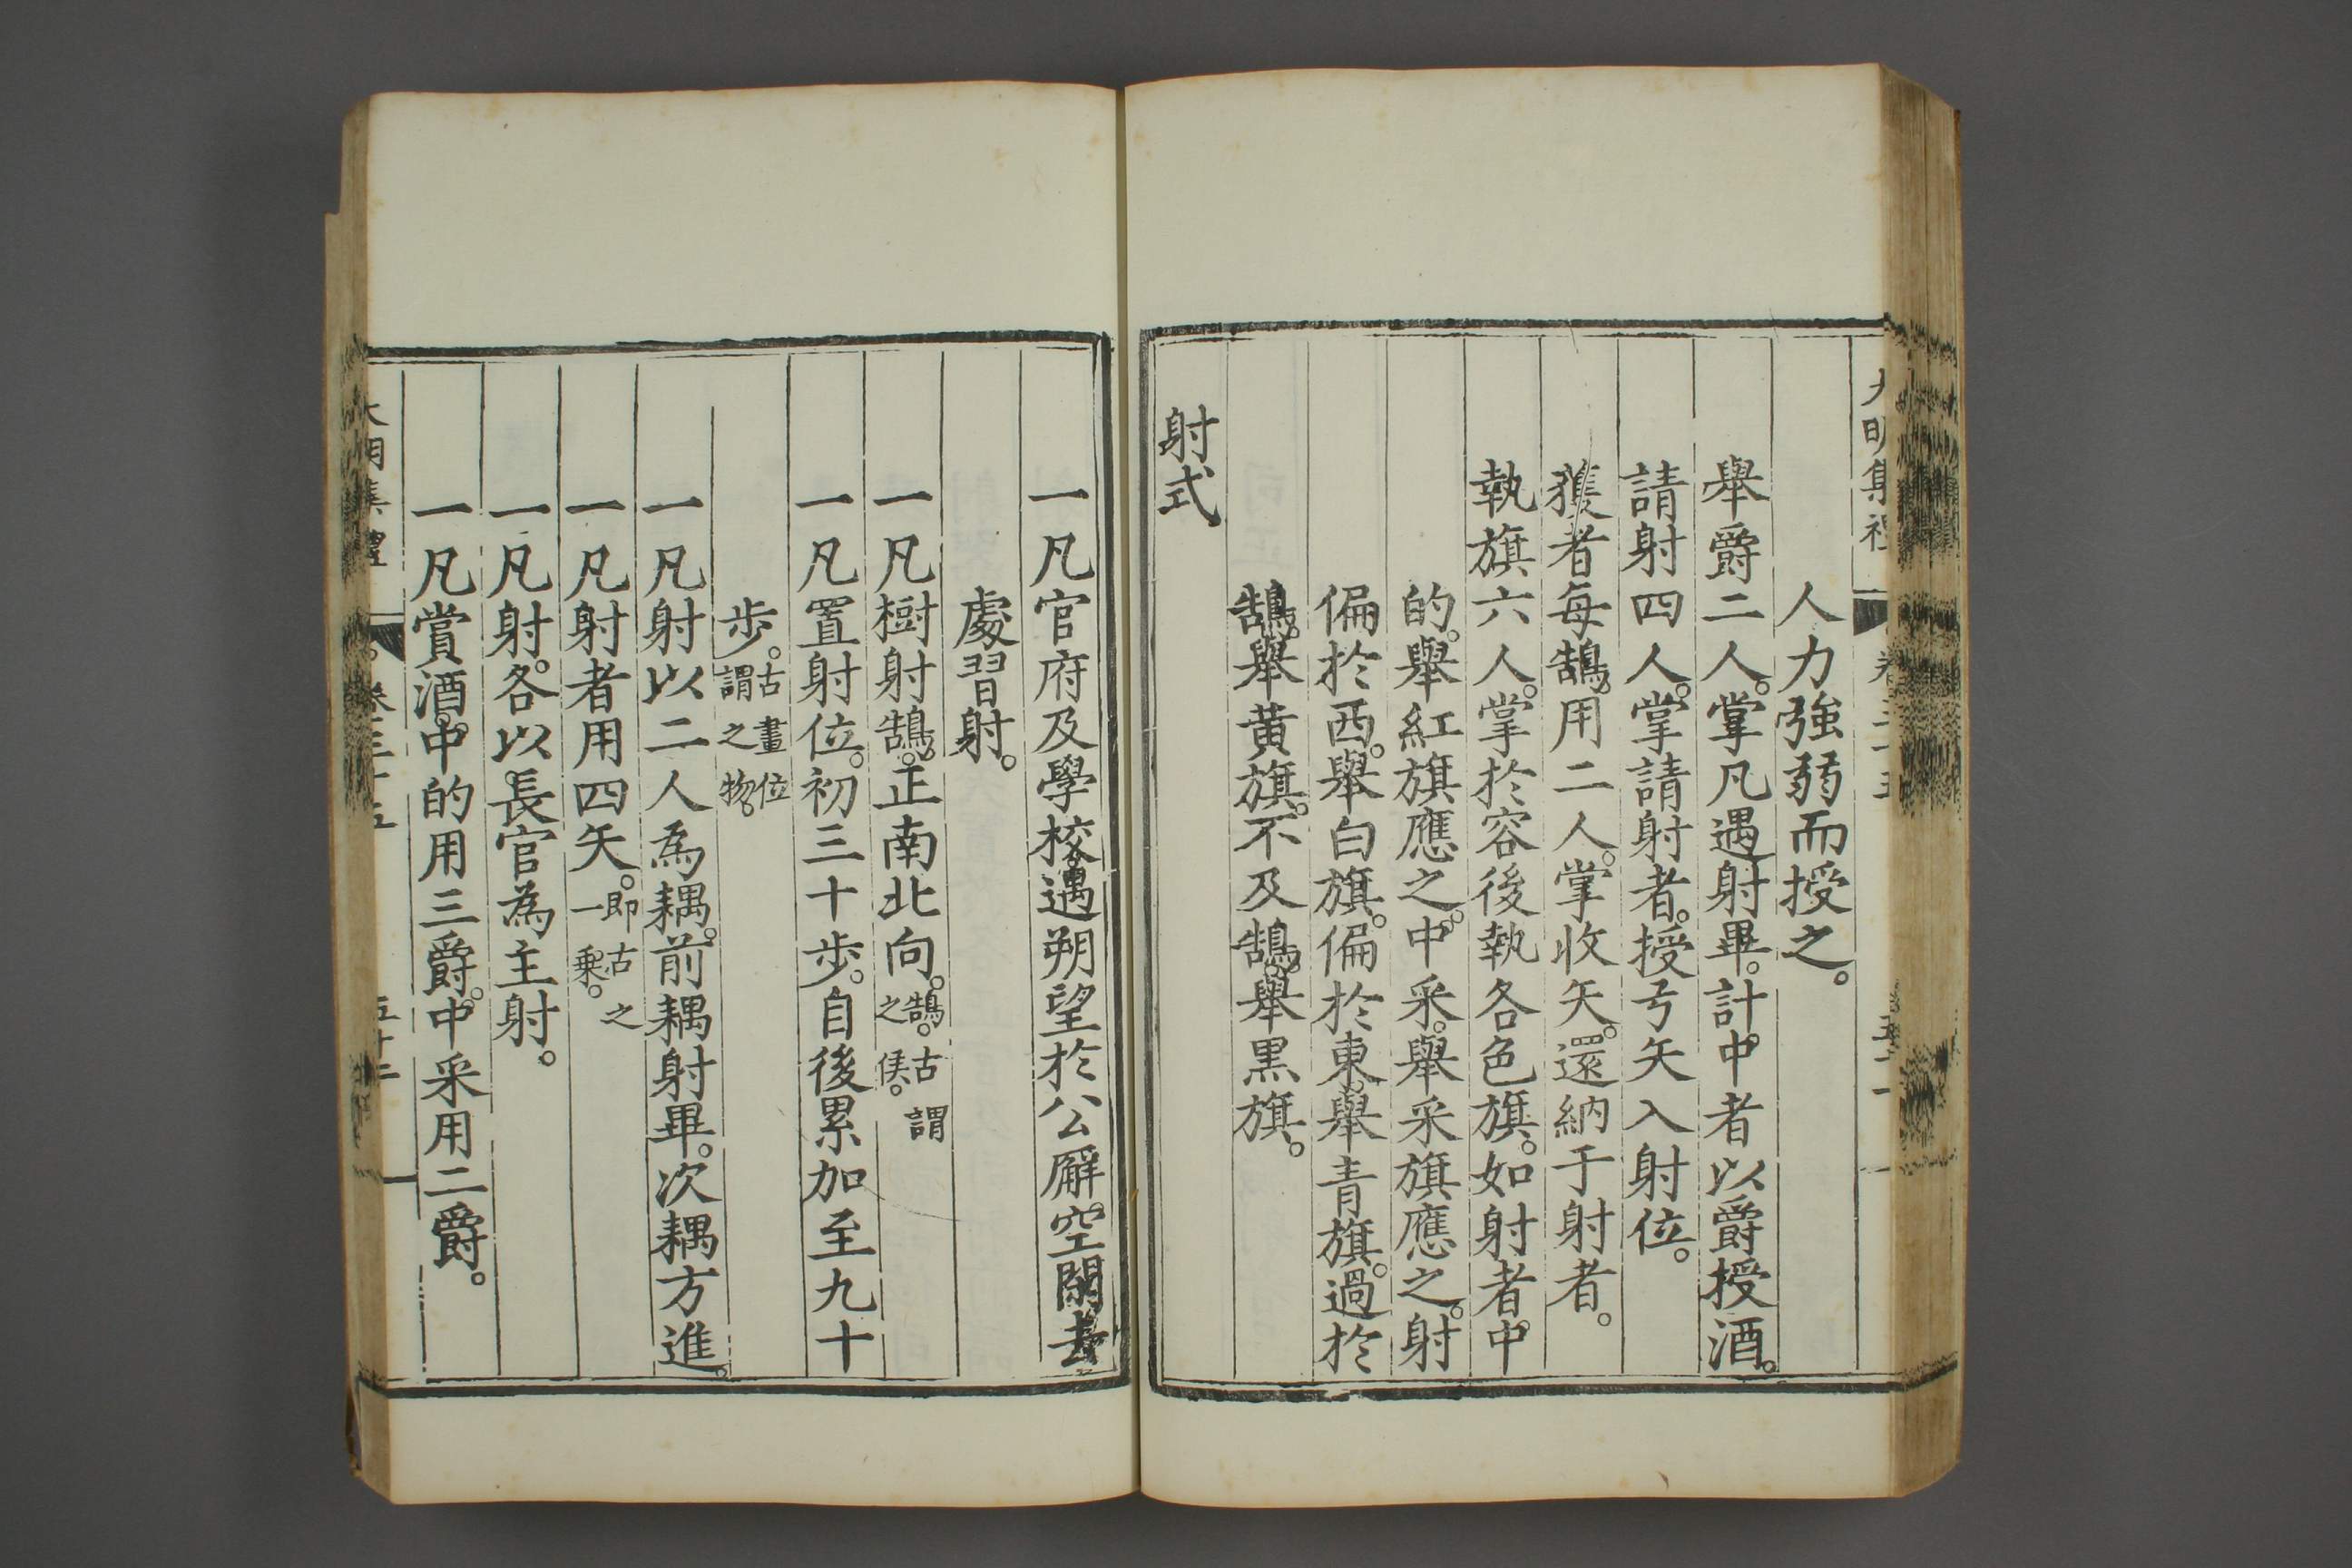 大明集禮
卷三十五
人力強弱而授之。
舉爵二人。掌凡遇射畢。計中者以爵授酒。
請射四人。掌請射者。授弓矢入射位。
獲者每鵠。用二人。掌收矢。還納于射者。
執旗六人。掌於容後執各色旗。如射者中
的。舉紅旗應之。中采。舉采旗應之。射
偏於西。舉白旗。偏於東。舉青旗。過於
鵠。舉黄旗。不及鵠。舉黒旗。
射式
一凡官府及學校。遇朔望於公廨。空閑去
處習射。
一凡樹射鵠。正南北向。鵠。古謂
之侯。
一凡置射位。初三十歩。自後累加至九十
歩。古畫位
謂之物。
一凡射以二人為耦。前耦射畢。次耦方進。
一凡射者用四矢。即古之
一乗。
一凡射。各以長官為主射。
一凡賞酒。中的用三爵。中采用二爵。
大明集禮
卷三十五
五十二